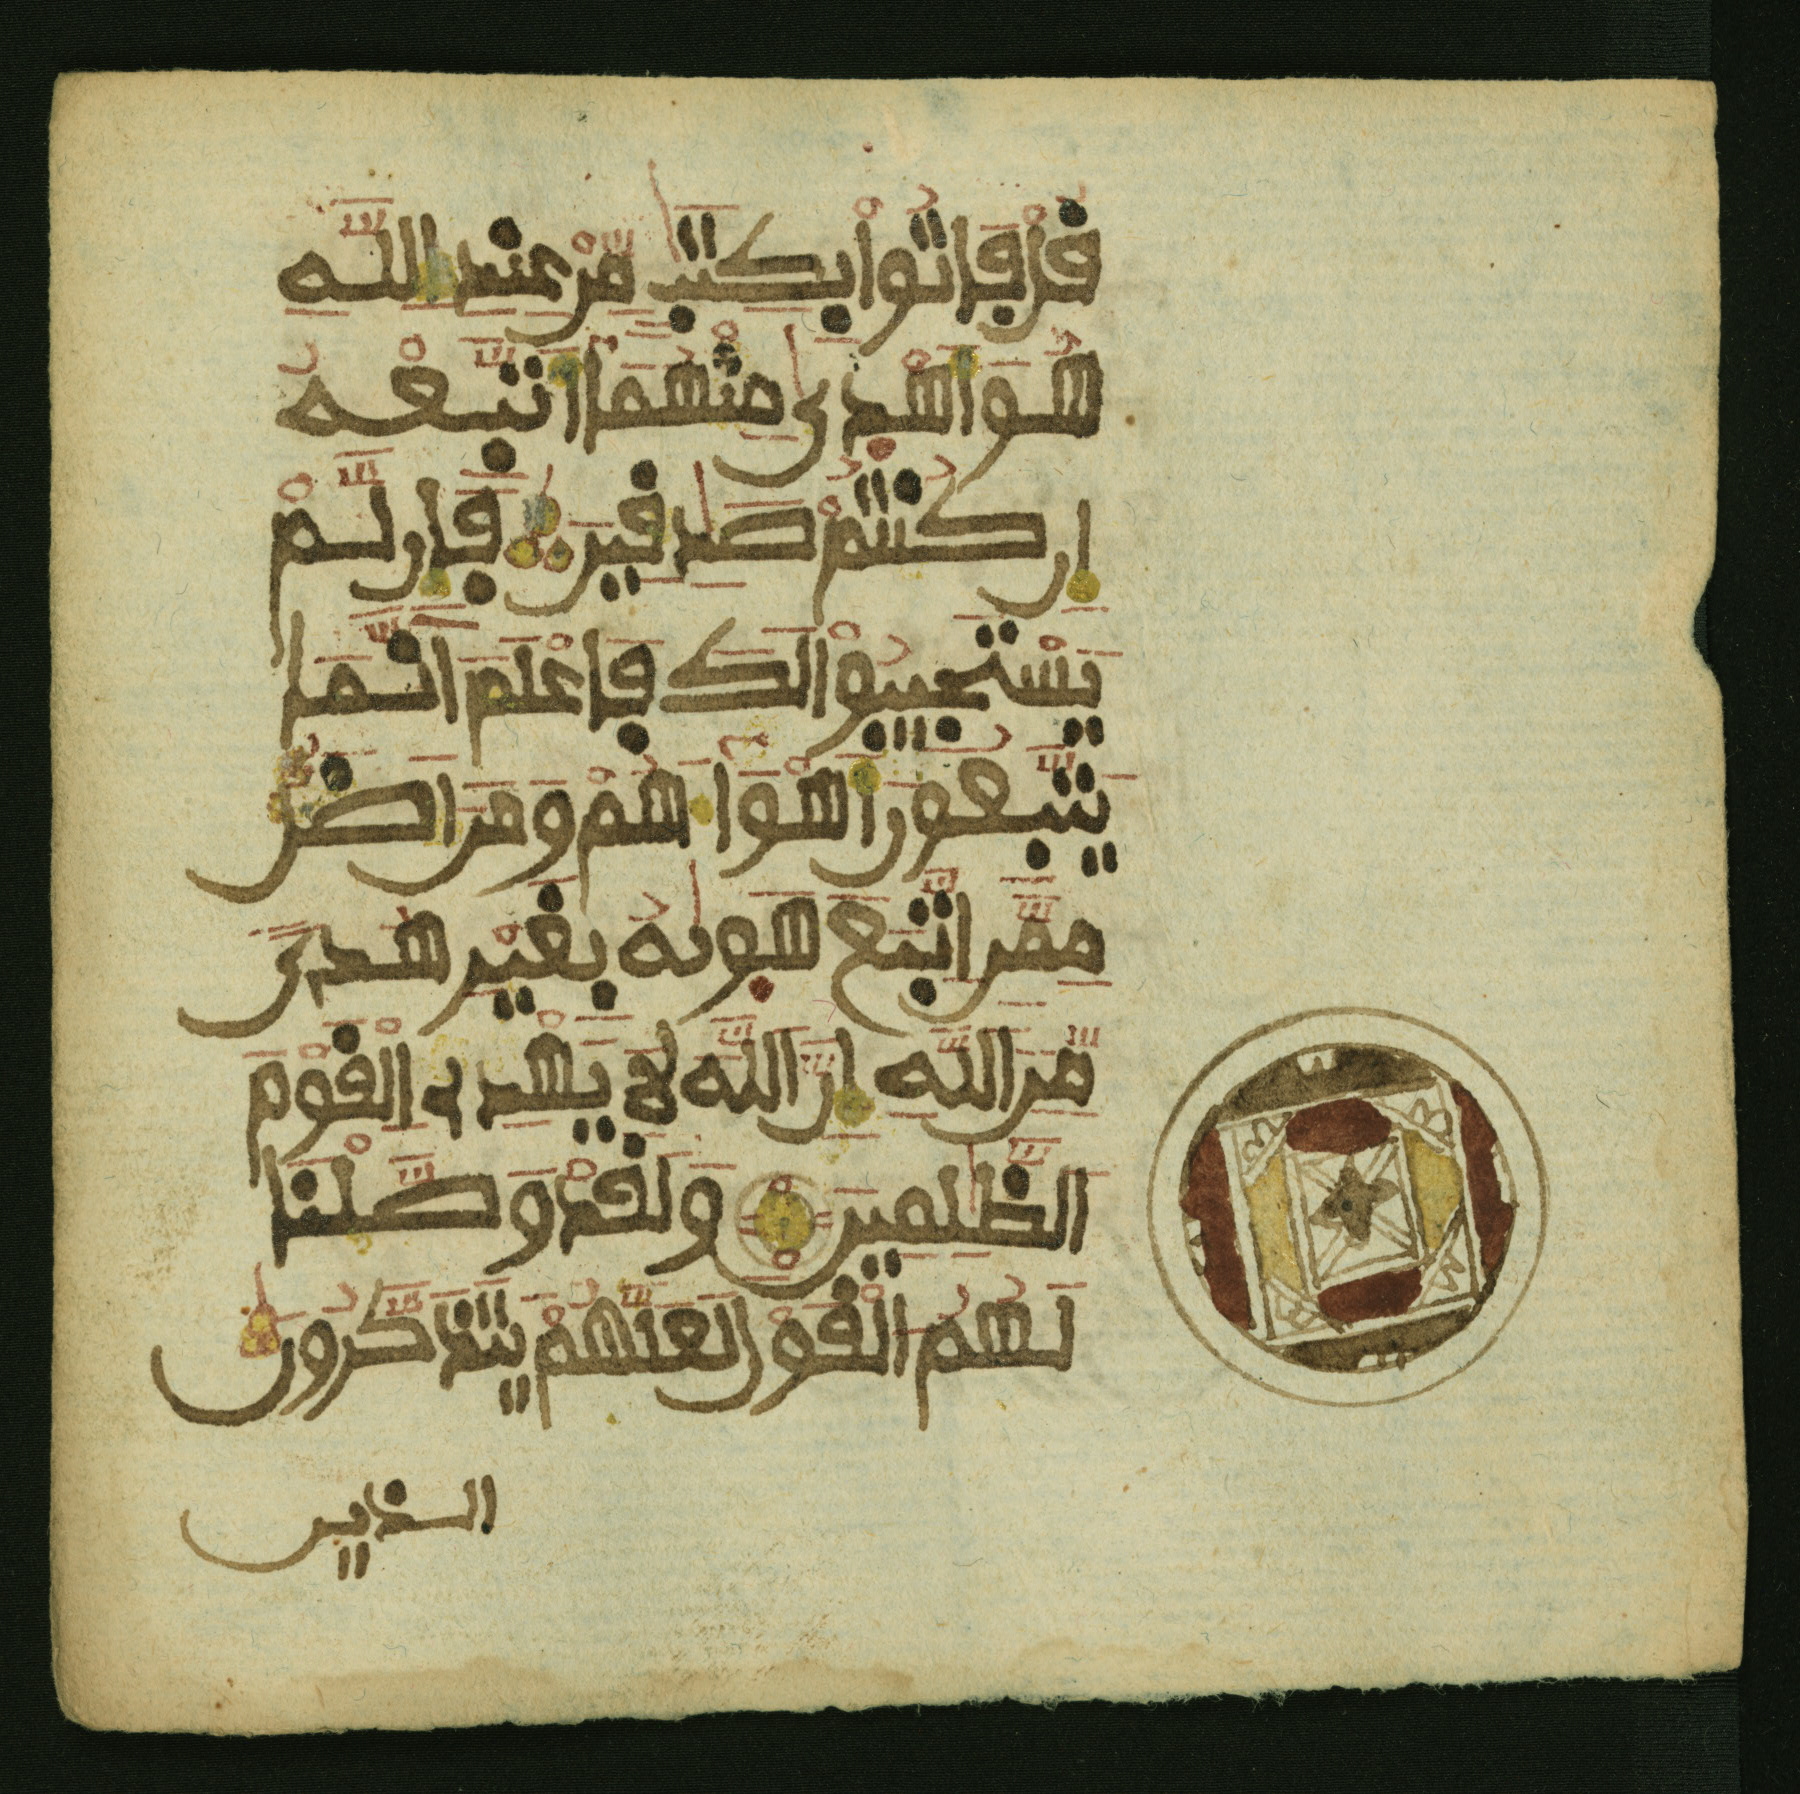 قُلْ فَاتُوا۟ بِكِتَٰبٍ مِّنْ عِندِ اللَّهِ
هُوَ أَهْدَىٰ مِنْهُمَا أَتَّبِعْهُ
إِن كُنتُمْ صَٰدِقِينَ فَإِن لَّمْ
يَسْتَجِيبُوا۟ لَكَ فَاعْلَمْ أَنَّمَا
يَتَّبِعُونَ أَهْوَآءَهُمْ وَمَنَ اَضَلُّ
مِمَّنِ اتَّبَعَ هَوَىٰهُ بِغَيْرِ هُدًى
مِّنَ اللَّهِ إِنَّ اللَّهَ لَا يَهْدِى الْقَوْمَ
الظَّٰلِمِينَ وَلَقَدْ وَصَّلْنَا
لَهُمُ الْقَوْلَ لَعَلَّهُمْ يَتَذَكَّرُونَ
الذين